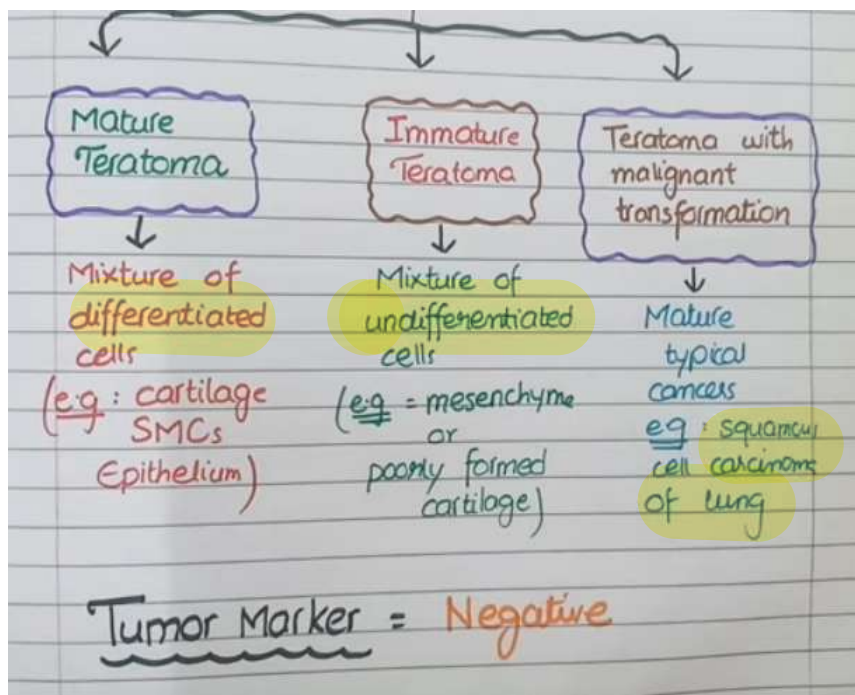 Mature
Teratoma
Mixture of
differentiated
cells
(e.g : cartilage
SMCs
Epithelium)
Immature
Teratoma
Mixture of
undifferentiated
cells
(e.g = mesenchyme
or
poorly formed
cartilage)
Teratoma with
malignant
transformation
Mature
typical
cancers
eg : squamous
cell carcinoma
of lung
Tumor Marker = Negative